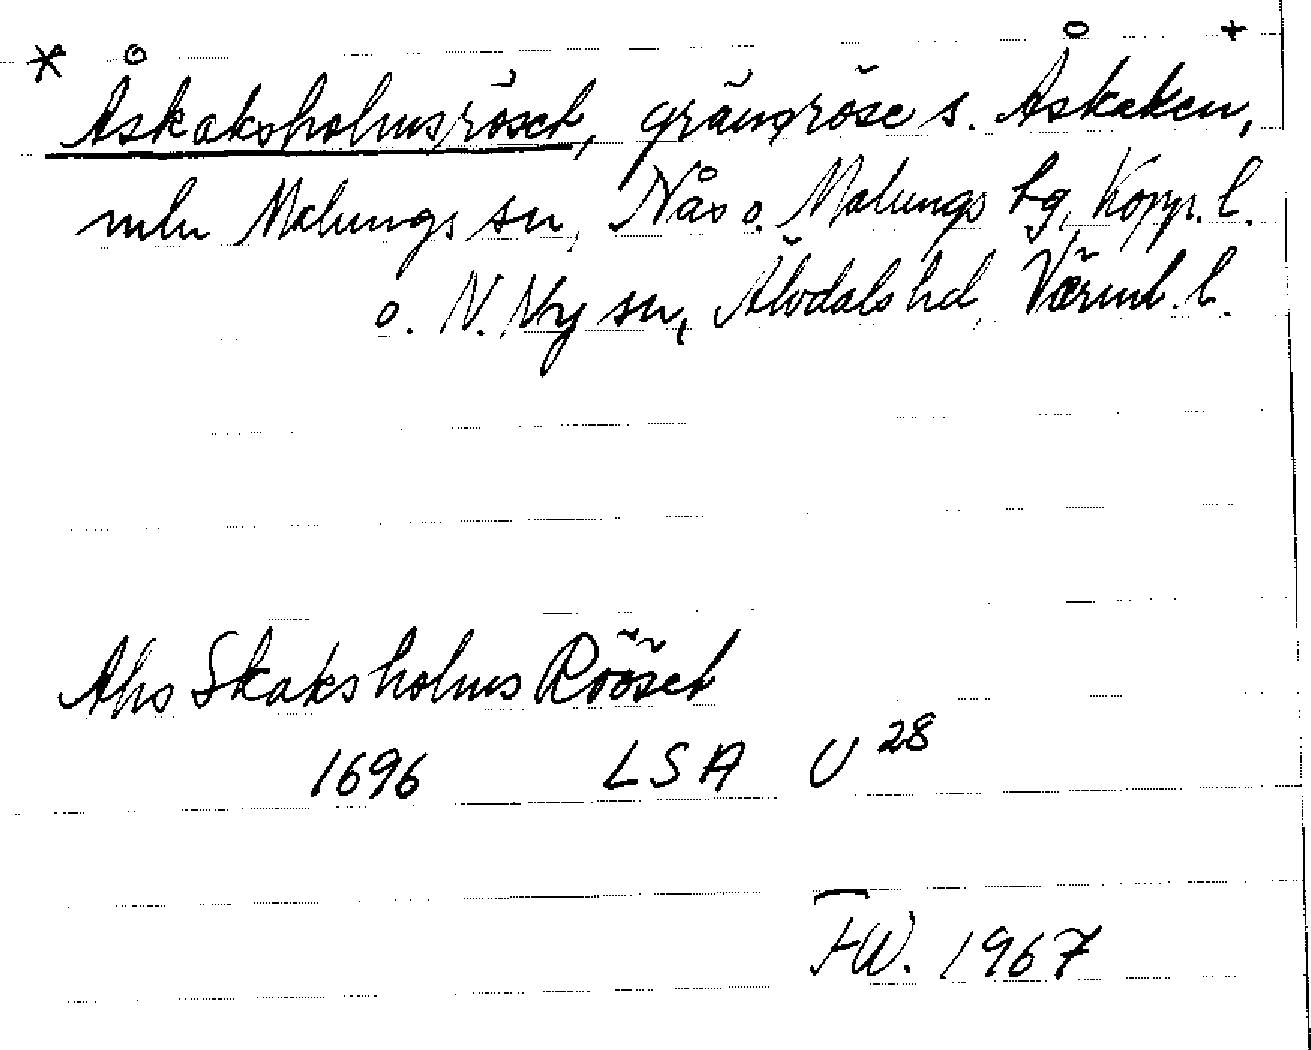 * Åskaksholmsröset, gränsröse s. Åskaken, +
mln Malungs sn, Nås o. Malungs tg, Kopp. l.
o. N. Ny sn, Älvdals hd, Värml. l.
Ahs Skaksholms Rööset
1696 LSA U 28
FW. 1967